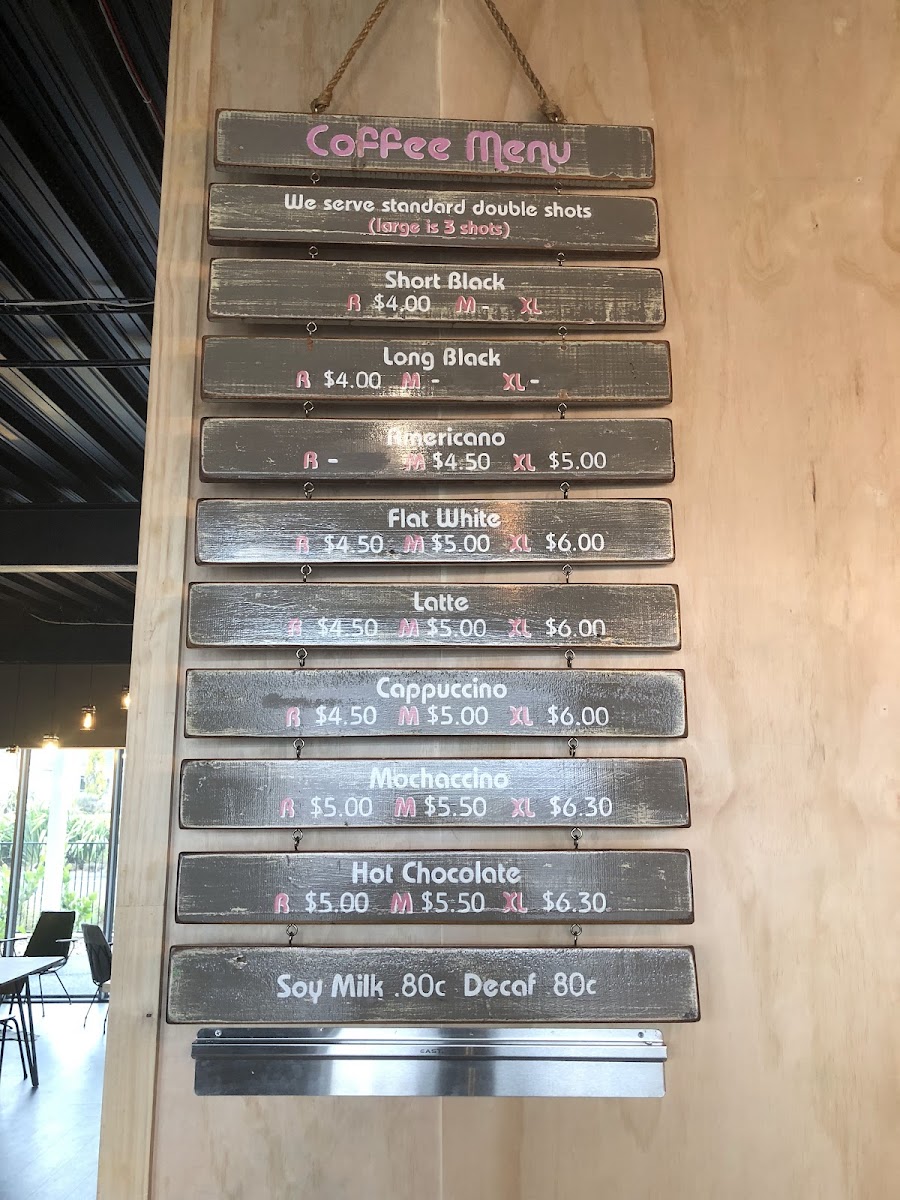 Coffee Menu
We serve standard double shots
(large is 3 shots)
Short Black
R $4.00 M - XL
Long Black
R $4.00 M - XL -
Americano
R - M $4.50 XL $5.00
Flat White
R $4.50 M $5.00 XL $6.00
Latte
R $4.50 M $5.00 XL $6.00
Cappuccino
R $4.50 M $5.00 XL $6.00
Mochaccino
R $5.00 M $5.50 XL $6.30
Hot Chocolate
R $5.00 M $5.50 XL $6.30
Soy Milk .80c Decaf .80c
EAST